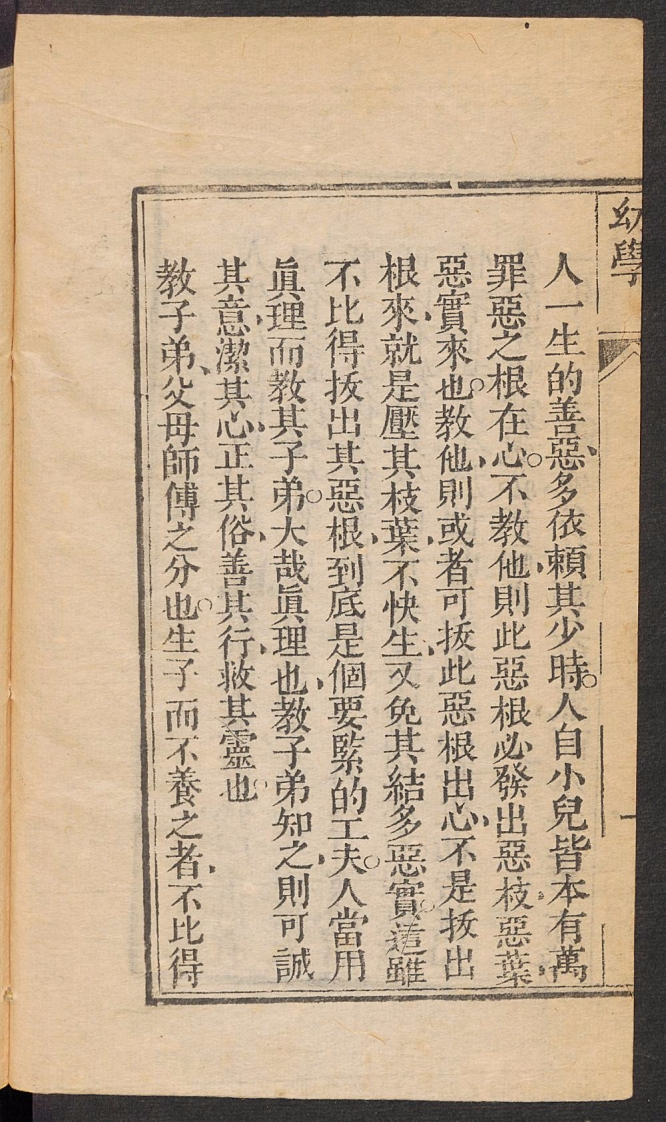 幼學
一
人一生的善惡、多依賴其少時。人自小兒皆本有萬
罪惡之根在心。不教他、則此惡根必發出惡枝、惡葉、
惡實來也。教他、則或者可拔此惡根出心、不是拔出
根來、就是壓其枝葉、不快生、又免其結多惡實。這雖
不比得拔出其惡根、到底是個要緊的工夫。人當用
眞理而教其子弟。大哉眞理也、教子弟知之、則可誠
其意、潔其心、正其俗、善其行、救其靈也。
教子弟、父母師傅之分也。生子而不養之者、不比得